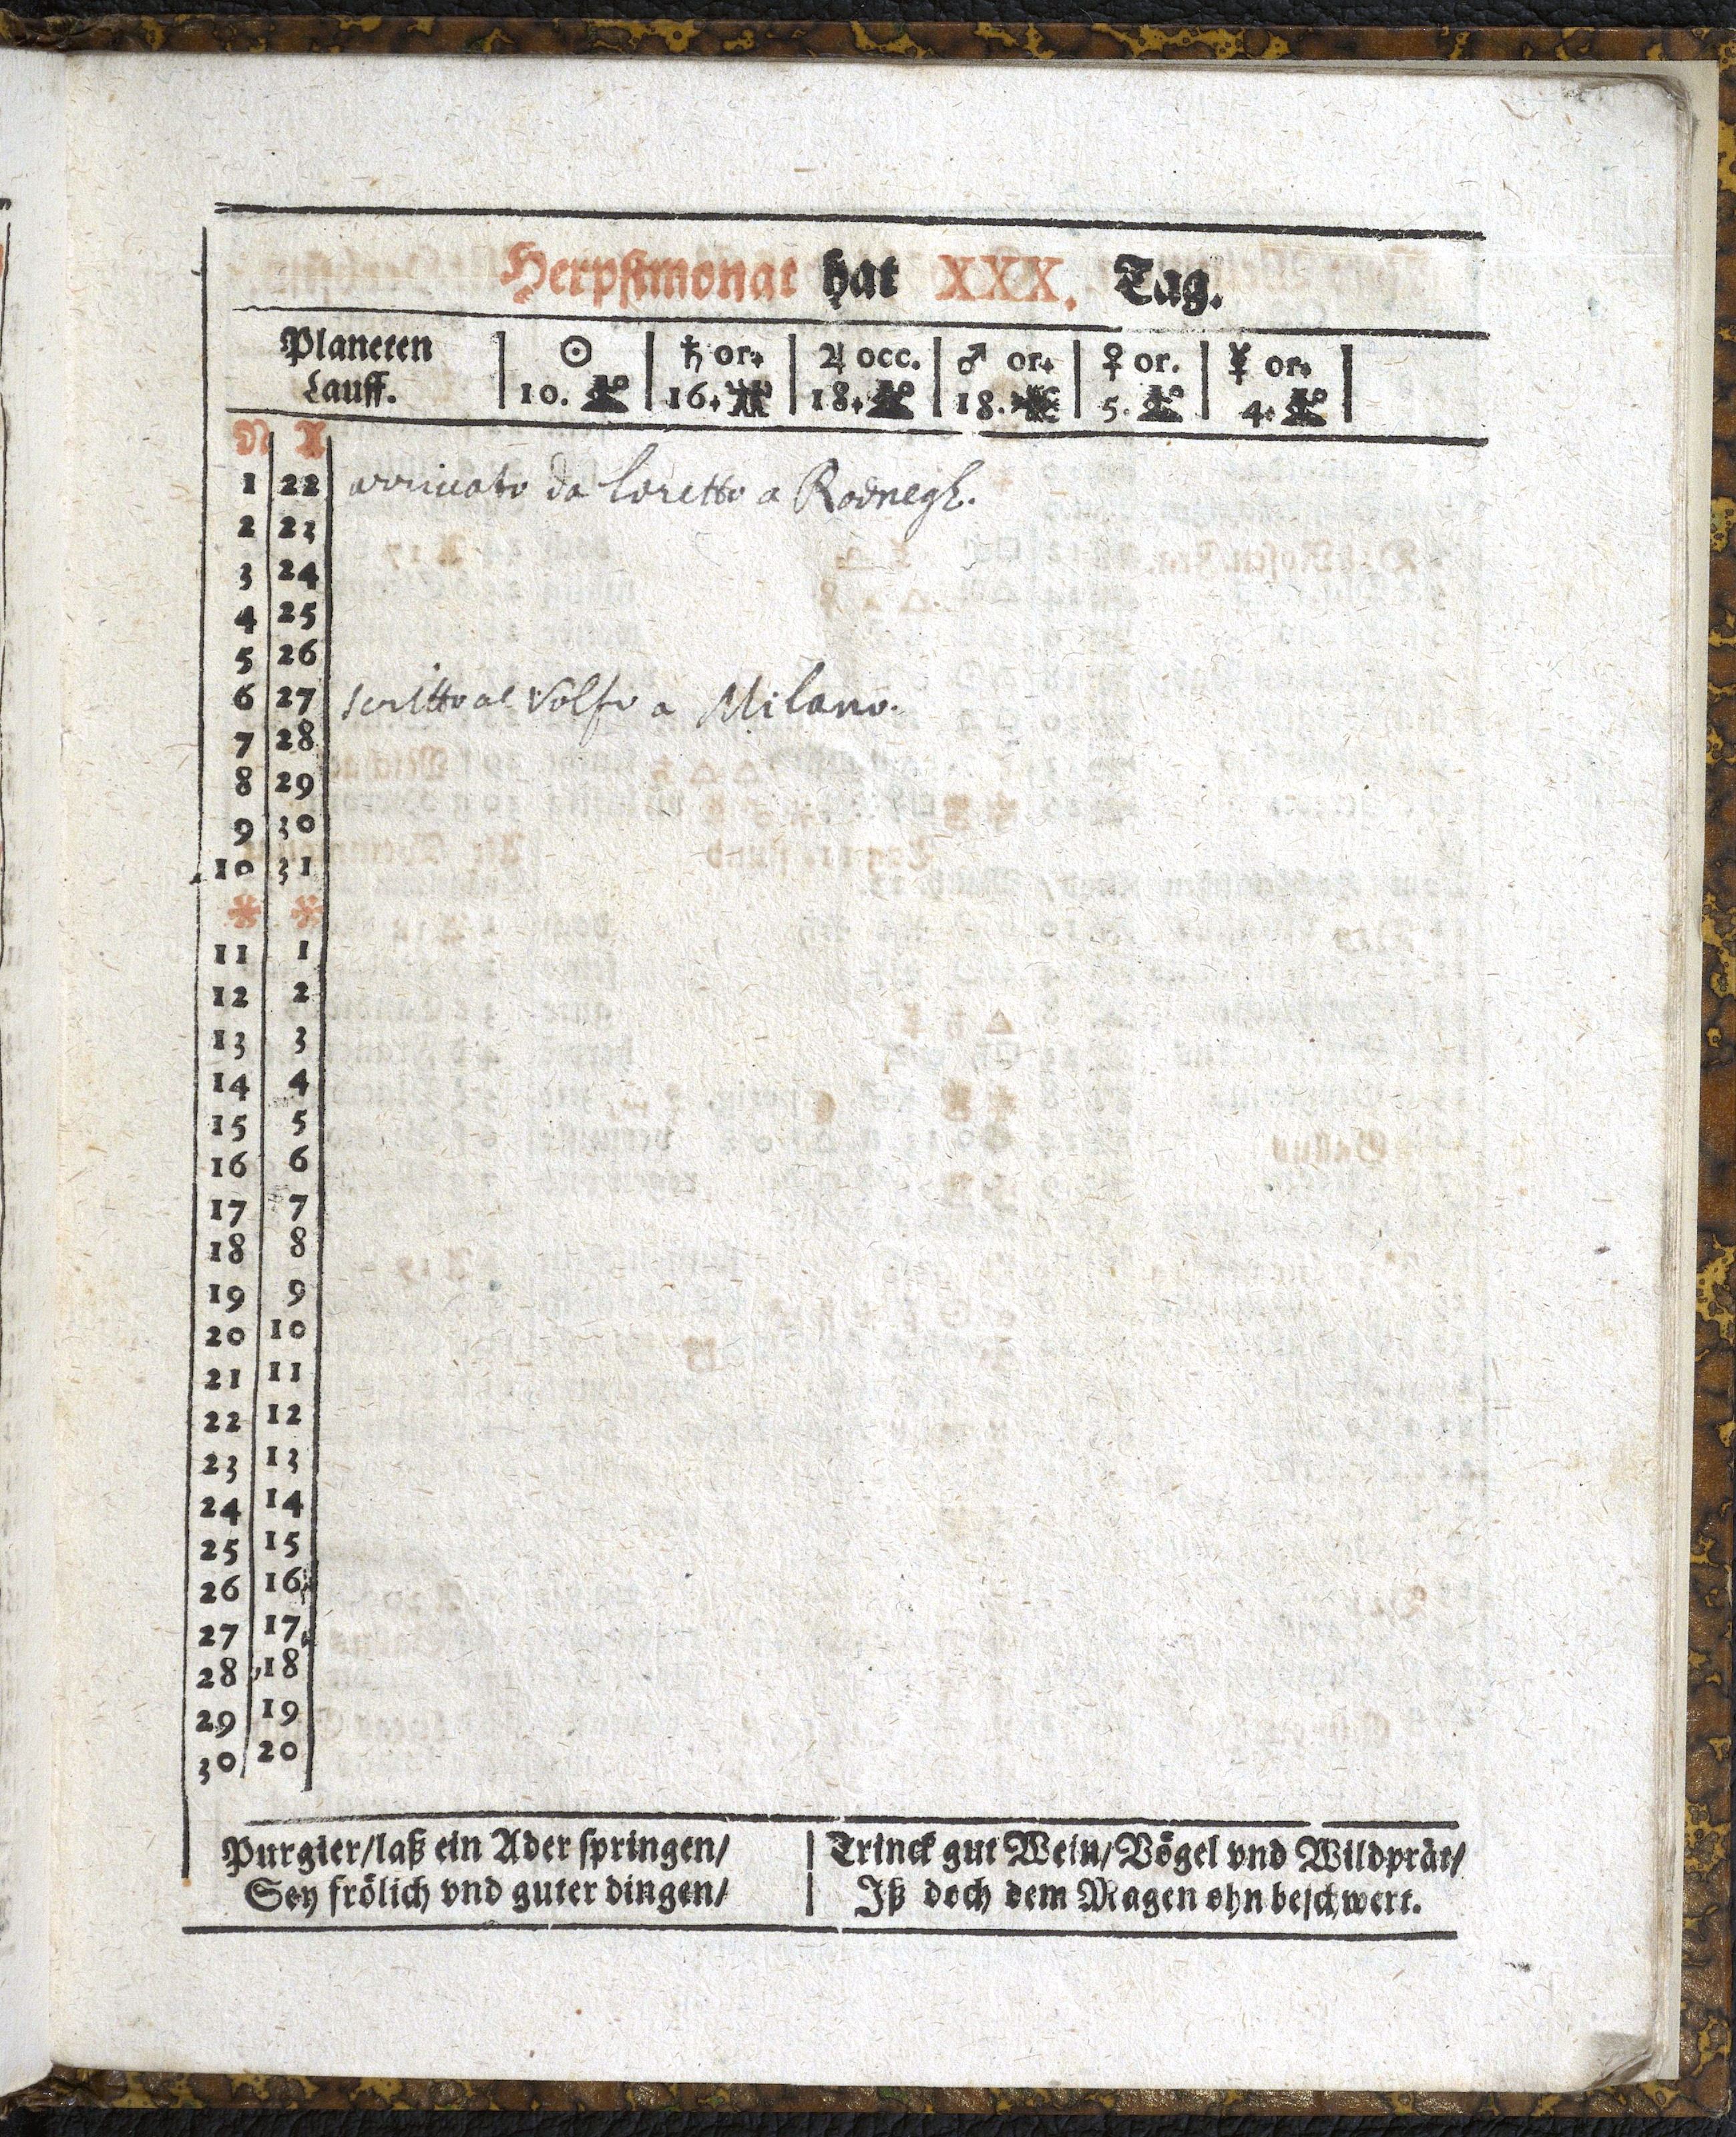 Herpstmonat hat XXX. Tag.
Planeten | ☉ | ♄ or. | ♃ occ. | ♂ or. | ♀ or. | ☿ or.
Lauff. | 10. ♍ | 16. ♊ | 18. ♍ | 18. | 5. ♍ | 4. ♍
N A
1 22 arriuato da Loretto a Rodnegh.
2 23
3 24
4 25
5 26
6 27 scritto al Volfo a Milano.
7 28
8 29
9 30
10 31
* *
11 1
12 2
13 3
14 4
15 5
16 6
17 7
18 8
19 9
20 10
21 11
22 12
23 13
24 14
25 15
26 16
27 17
28 18
29 19
30 20
Purgier/laß ein Ader springen/
Sey frölich vnd guter dingen/
Trinck gut Wein/Vögel vnd Wildprät/
Iß doch dem Magen ohn beschwert.